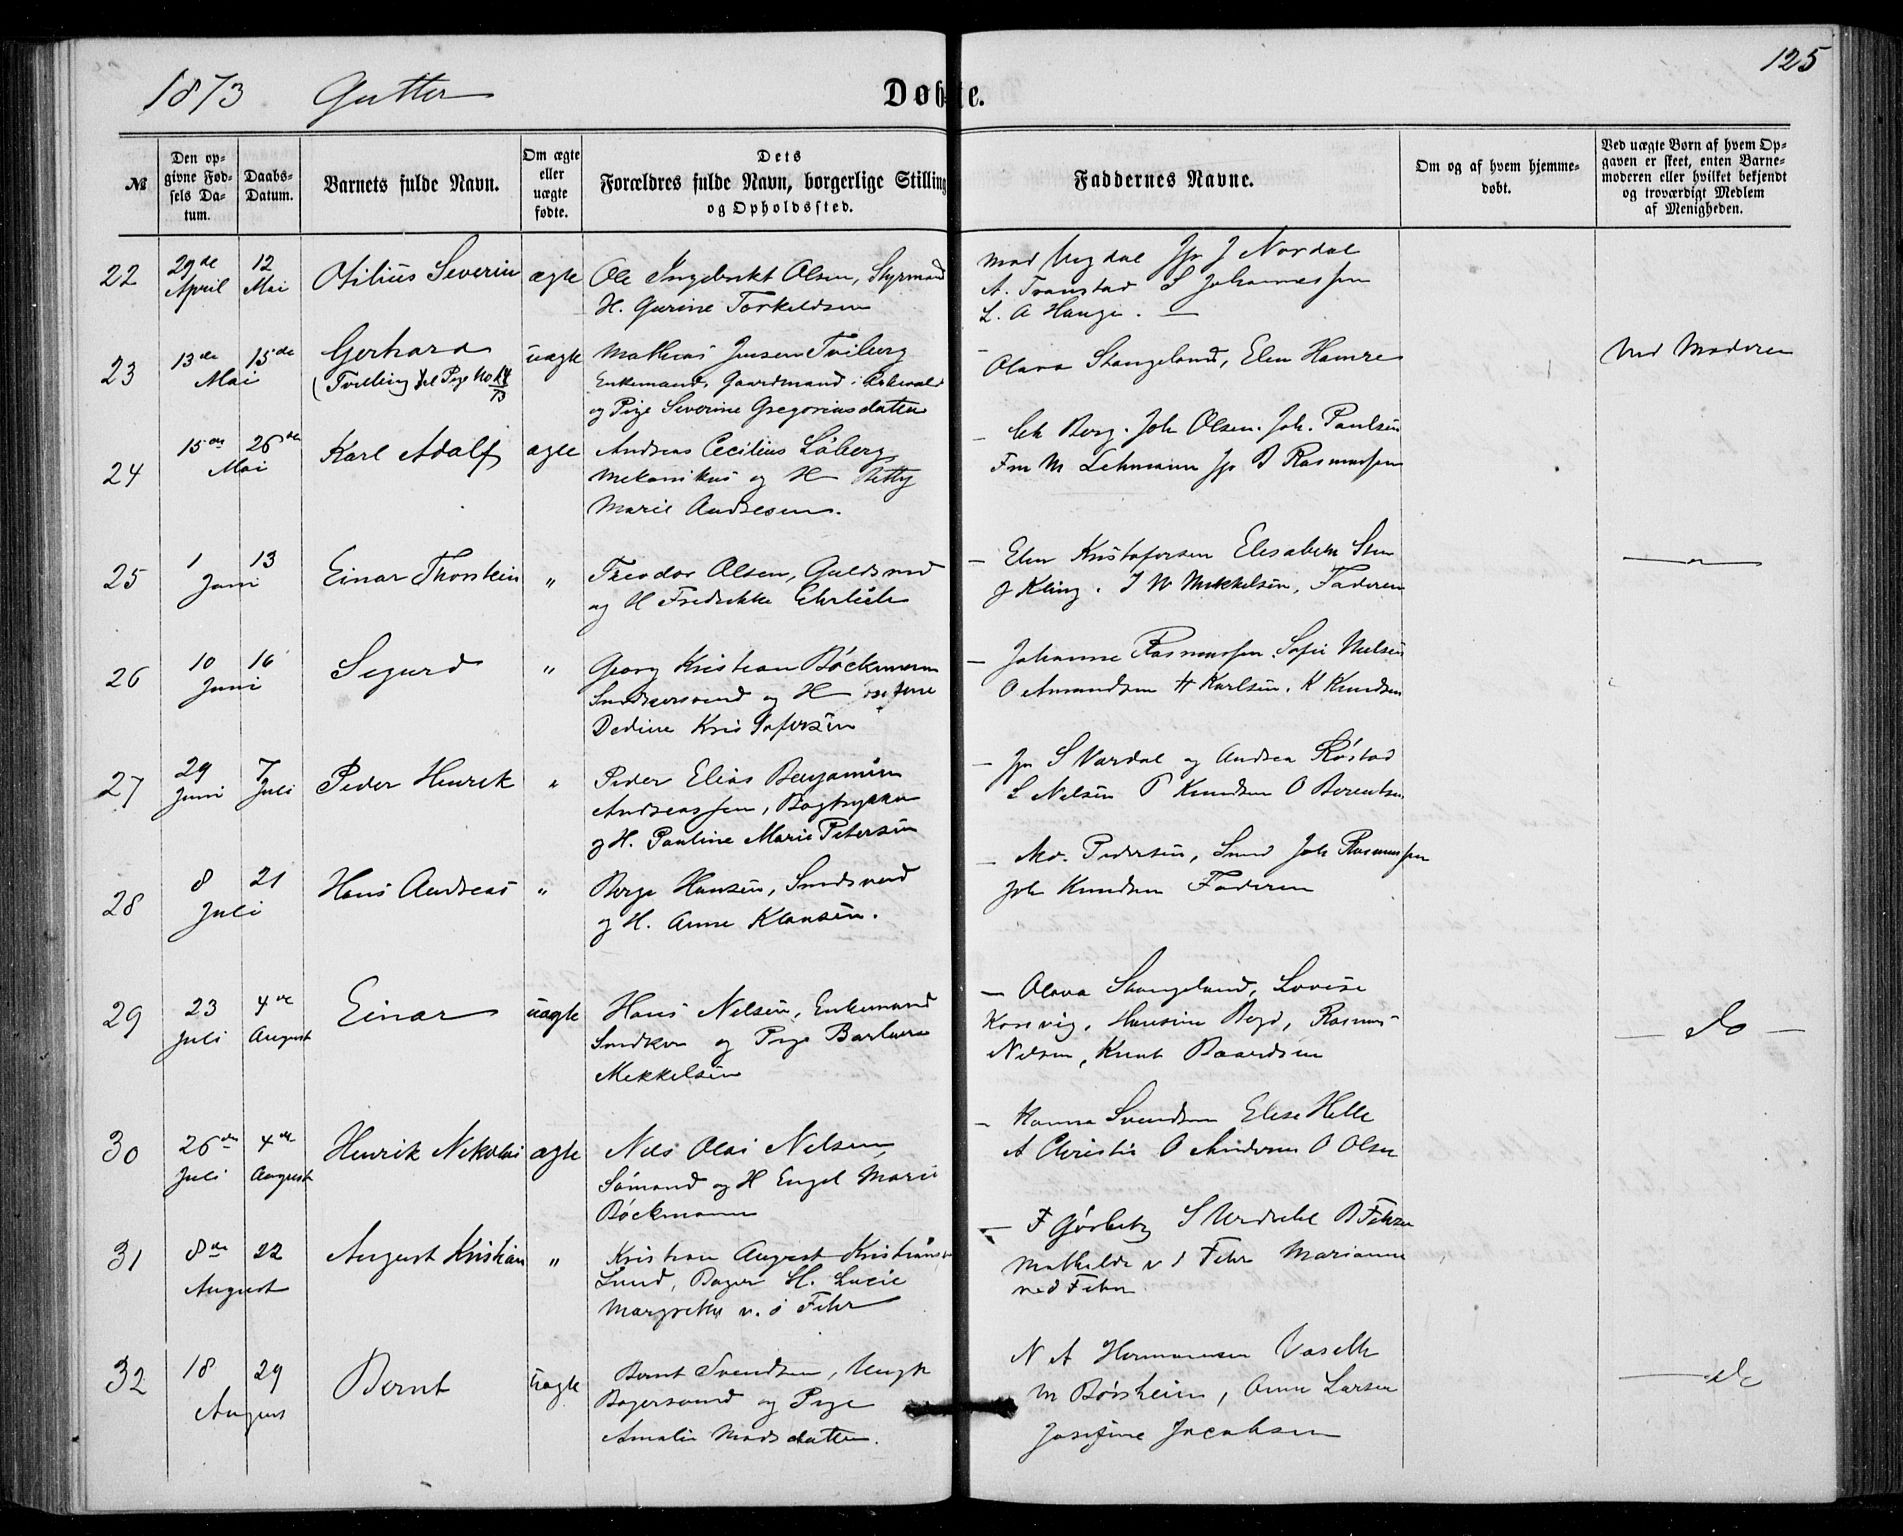 125
1873 Gutter Døbte.
№
Den opgivne Fødsels Datum.
Daabs-Datum.
Barnets fulde Navn.
Om ægte eller uægte fødte.
Dets Forældres fulde Navn, borgerlige Stilling og Opholdssted.
Faddernes Navne.
Om og af hvem hjemmedøbt.
Ved uægte Børn af hvem Opgaven er skeet, enten Barnemoderen eller hvilket bekjendt og troværdigt Medlem af Menigheden.
22 29de April 12 Mai Otilius Severin ægte
Ole Ingebrekt Olsen, Styrmand
H. Gurine Torkeldsen
Mad Jfr J Nordal
A. Transtad S Johannessen
L. A Hauge. —
23 13de 15de Mai Gerhard uægte
(Tvilling f. Pige No 14/73
Mathias Jensen Tviberg
Enkemand, Gaardmand i
og Pige Severine Gregoriusdatter
Olava Stangeland, Elen Hamre
Ved Moderen
24 15de 26de Mai Karl Adolf ægte
Andreas Cecilius Løberg
Mekanikus og H Jetty
Marie Andresen.
— Berg. Joh Olsen. Joh. Paulsen
Fru M Lehmann Jfr B Rasmussen
25 1 13 Juni Einar Thorstein „
Teodor Olsen, Guldsmed
og H Fredrikke Ehrlich
— Elen Kristofersen Elisabeth Sten
J Kling. J W Mikkelsen, Faderen
—„—
26 10 16 Juni Sigurd „
Georg Kristian Böckmann
Snedkersvend og H Josefine
Dedine Kristofersen
— Johanne Rasmussen. Sofie Nielsen
O Amundsen H Karlsen. K Knudsen
27 29 Juni 7 Juli Peder Henrik „
Peder Elias Benjamin
Andreassen, Bogtrykker
og H. Pauline Marie Petersen
— Jfr S Vardal og Andrea Røstad
L Nelsen P Knudsen O Berentsen
28 8 21 Juli Hans Andreas „
Berge Hansen, Smedsvend
og H. Anne Klausen.
— Md. Pedersen, Lund Joh Rasmussen
Joh Knudsen Faderen
29 23 Juli 4de August Einar uægte
Hans Nelsen, Enkemand
Snedker og Pige Barbara
Mekkelsen
— Olava Stangeland, Lovise
Korsvig, Hansine Boyd, Rasmus
Nelsen, Knut Baardsen
— do —
30 26de Juli 4de August Henrik Nikolai ægte
Nels Olai Nelsen,
Sømand og H Engel Marie
Böckmann
— Hanna Svendsen Elise Helle
A Christie O Andersen O Olsen
31 8de 22 August August Kristian „
Kristian August Kristiansen
Lund, Bager H. Lucie
Margrethe v. d Fehr
— F Gørbitz S B Fehr
Mathilde v d Fehr Marianne
v d Fehr
32 18 29 August Bernt uægte
Bernt Svendsen, Ungk
Bagersvend og Pige
Amalie Madsdatter.
N A Hermansen
M Børsheim, Anne Larsen
Josefine Jacobsen
— do